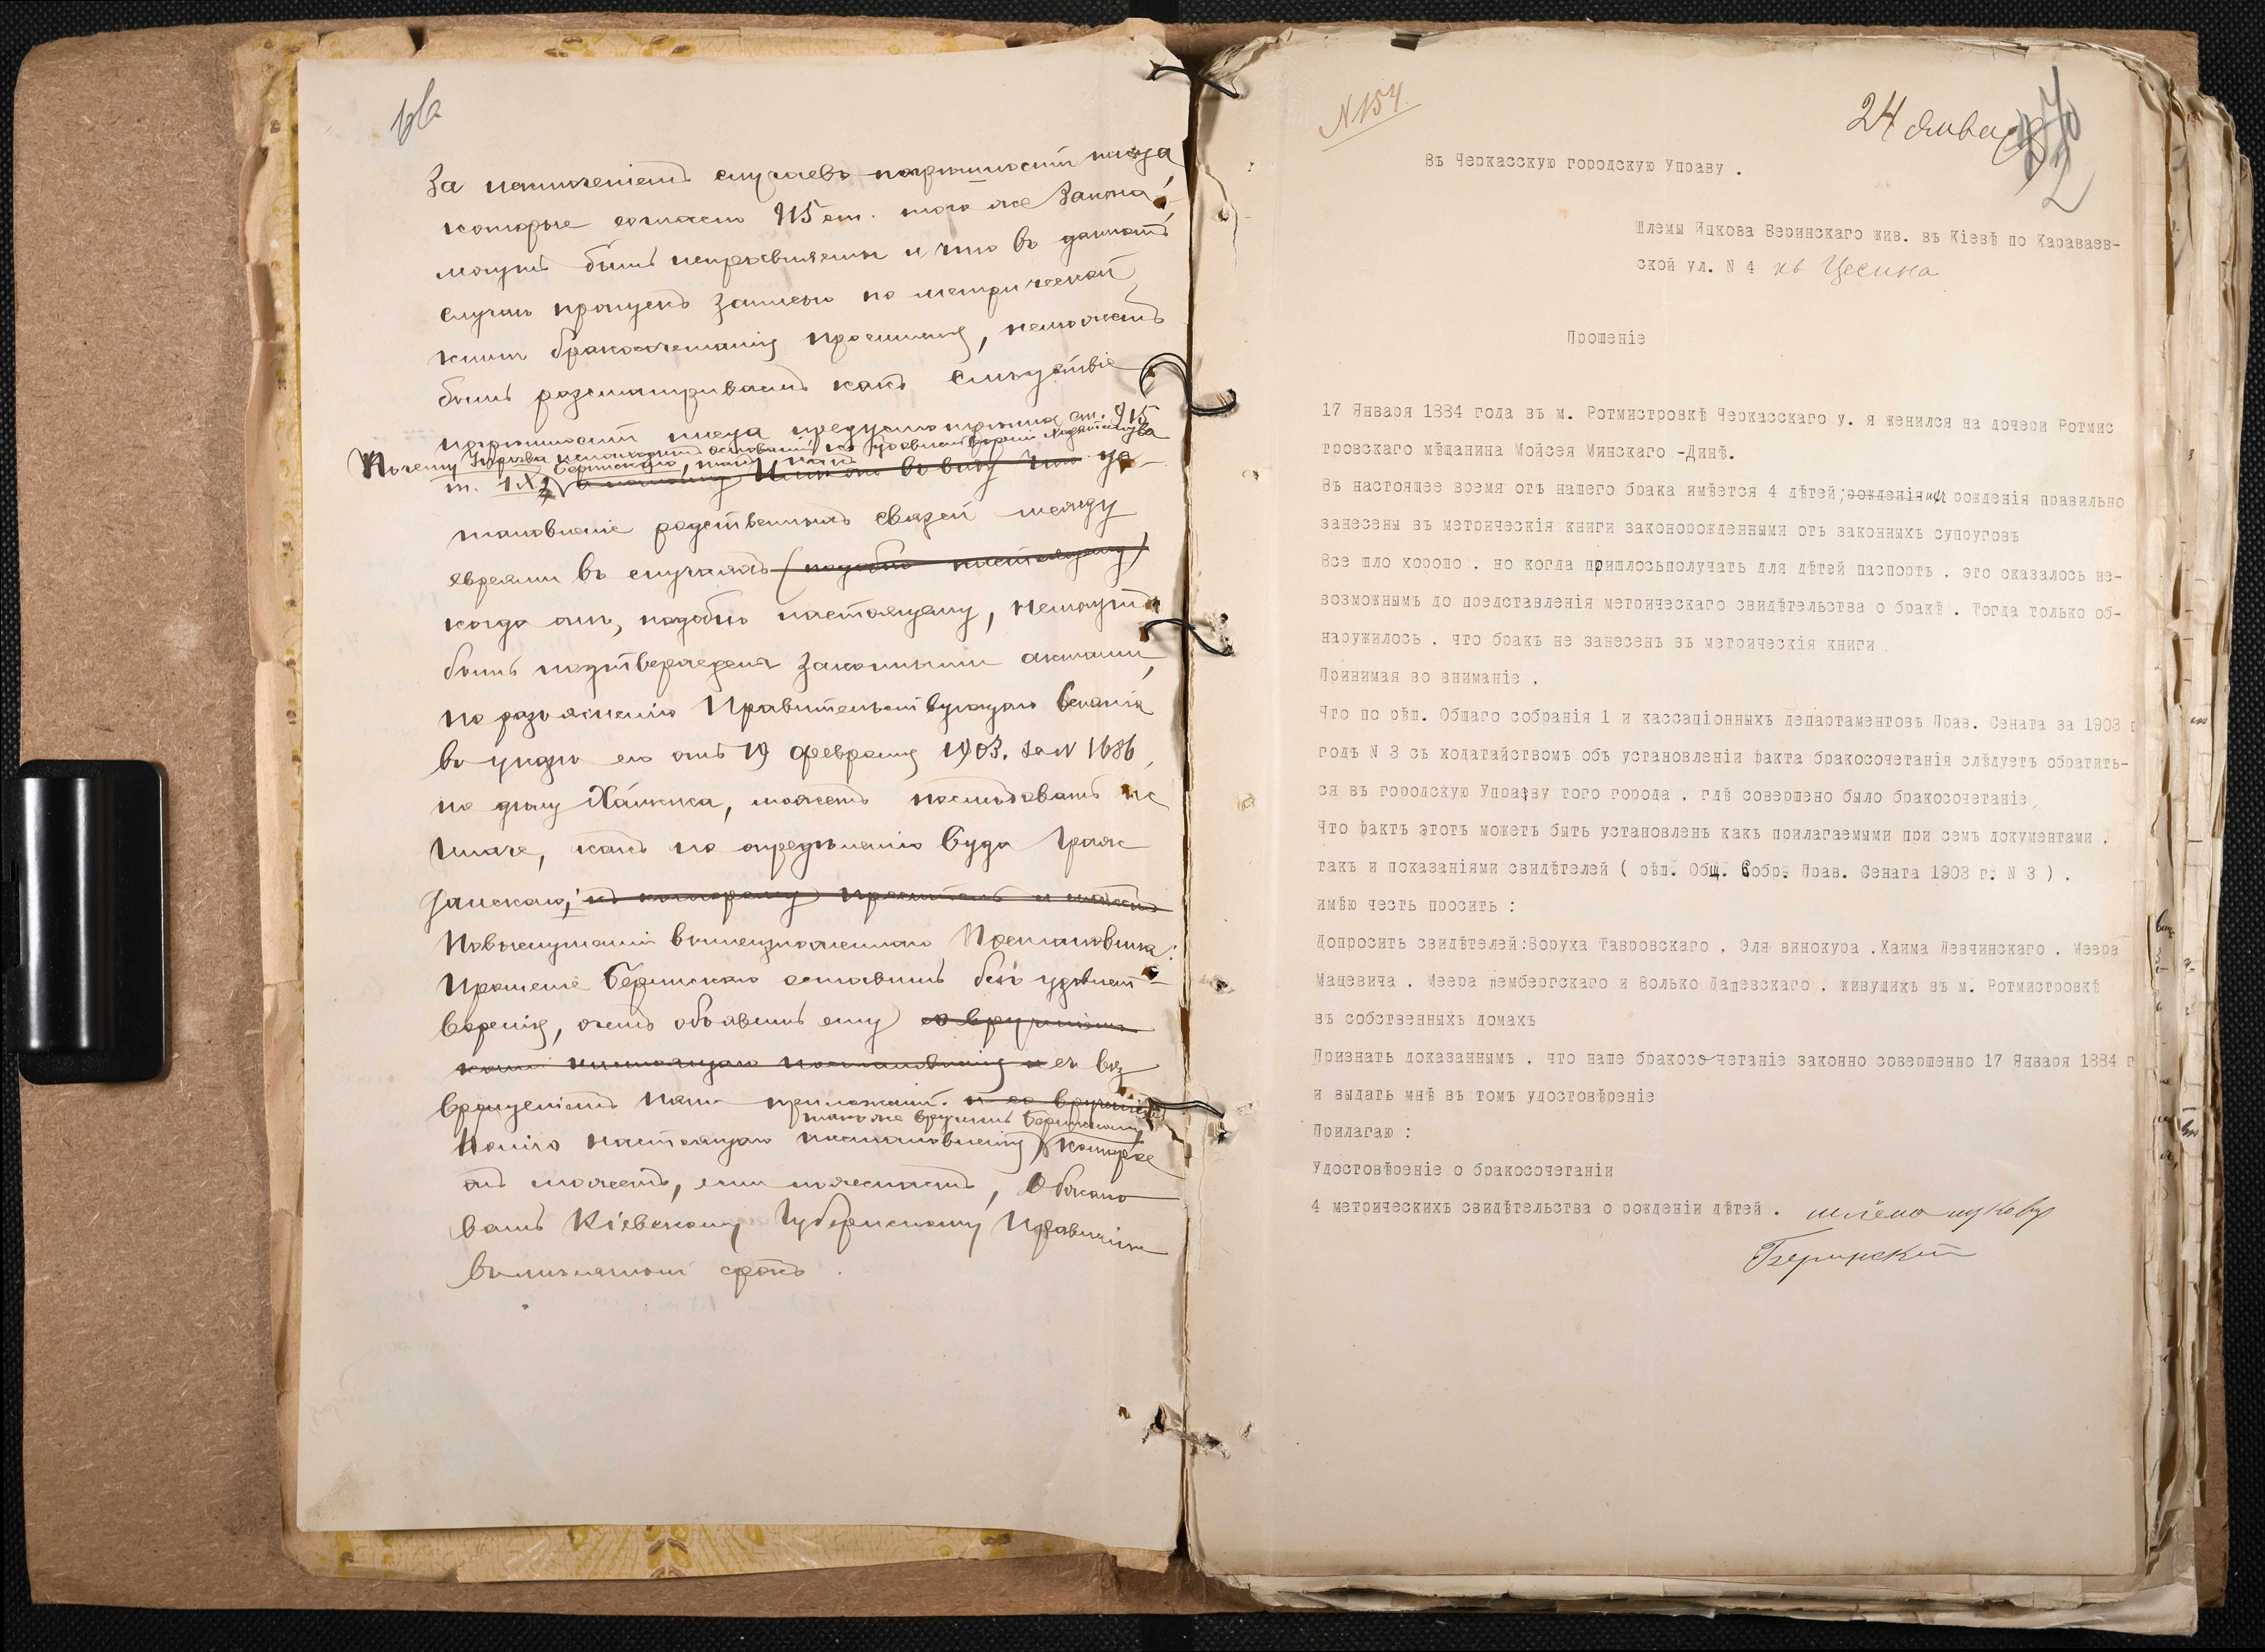 за исключеніемъ случаевъ погрѣшности писца
которые согласно 915 ст. того же Закона
могутъ быть исправляемы и что въ данномъ
случаѣ пропускъ записью по метрической
книгѣ бракосочетанія просителя, неможетъ
быть разсматриваемъ какъ слѣдствіе
погрѣшности писца предусмотрѣнна ст. 915
Почему Управа неподходитъ основаній къ удовлетворенію ходатайства
Беринскаго, такъ какъ
т. IX, Имѣя въ виду что ус-
тановленіе родственныхъ связей между
евреями въ случаяхъ (подобно настоящему)
когда они, подобно настоящему, немогутъ
быть подтверждены законными актами,
по разъясненію Правительствующаго Сената
въ указѣ его отъ 19 февраля 1903. за N 1686,
по дѣлу Хаикиса, можетъ послѣдовать не
иначе, какъ по опредѣленію Суда Граж-
данскаго, къ которому проситель и можетъ
Повыслушаніи вышеизложеннаго Постановила:
Прошеніе Беринскаго оставить безъ удовлет-
воренія, очемъ объявить ему со врученіемъ
копіи настоящаго постановленія и съ воз
вращеніемъ приложеній. и со врученіемъ
также вручить Беринскому
копію настоящаго постановленія, которое
онъ можетъ, если пожелаетъ, обжало
вать Кіевскому Губернскому Правленію
срокъ.
N 154.
24 Января
2
Въ Черкасскую городскую Управу .
Шлемы Ицкова Беринскаго жив. въ Кіевѣ по Караваев-
ской ул. N 4 кв Цесина
Прошеніе
17 Января 1884 года въ м. Ротмистровкѣ Черкасскаго у. я женился на дочери Ротмис
тровскаго мѣщанина Мойсея Минскаго -Динѣ.
Въ настоящее время отъ нашего брака имѣется 4 дѣтей, рожденія ихъ рожденія правильно
занесены въ метрическія книги законорожденными отъ законныхъ супруговъ
Все шло хорошо . но когда пришлосьполучать для дѣтей паспортъ . это оказалось не-
возможнымъ до представленія метрическаго свидѣтельства о бракѣ . Тогда только об-
наружилось . что бракъ не занесенъ въ метрическія книги .
Принимая во вниманіе .
Что по рѣш. Общаго собранія 1 и кассаціонныхъ департаментовъ Прав. Сената за 1903 г
годъ N 3 съ ходатайствомъ объ установленіи факта бракосочетанія слѣдуетъ обратить-
ся въ городскую Управу того города . гдѣ совершено было бракосочетаніе.
Что фактъ этотъ можетъ быть установленъ какъ прилагаемыми при семъ документами .
такъ и показаніями свидѣтелей ( рѣш. Общ. Собр. Прав. Сената 1903 г. N 3 ) .
имѣю честь просить :
Допросить свидѣтелей:Боруха Тавровскаго . Эля винокура .Хаима Левчинскаго . Меера
Мацевича . Меера Лембергскаго и Волько Дашевскаго . живущихъ въ м. Ротмистровкѣ
въ собственныхъ домахъ
Признать доказаннымъ . что наше бракосочетаніе законно совершенно 17 Января 1884 г
и выдать мнѣ въ томъ удостовѣреніе
Прилагаю :
Удостовѣреніе о бракосочетаніи
4 метрическихъ свидѣтельства о рожденіи дѣтей .
Беринскій